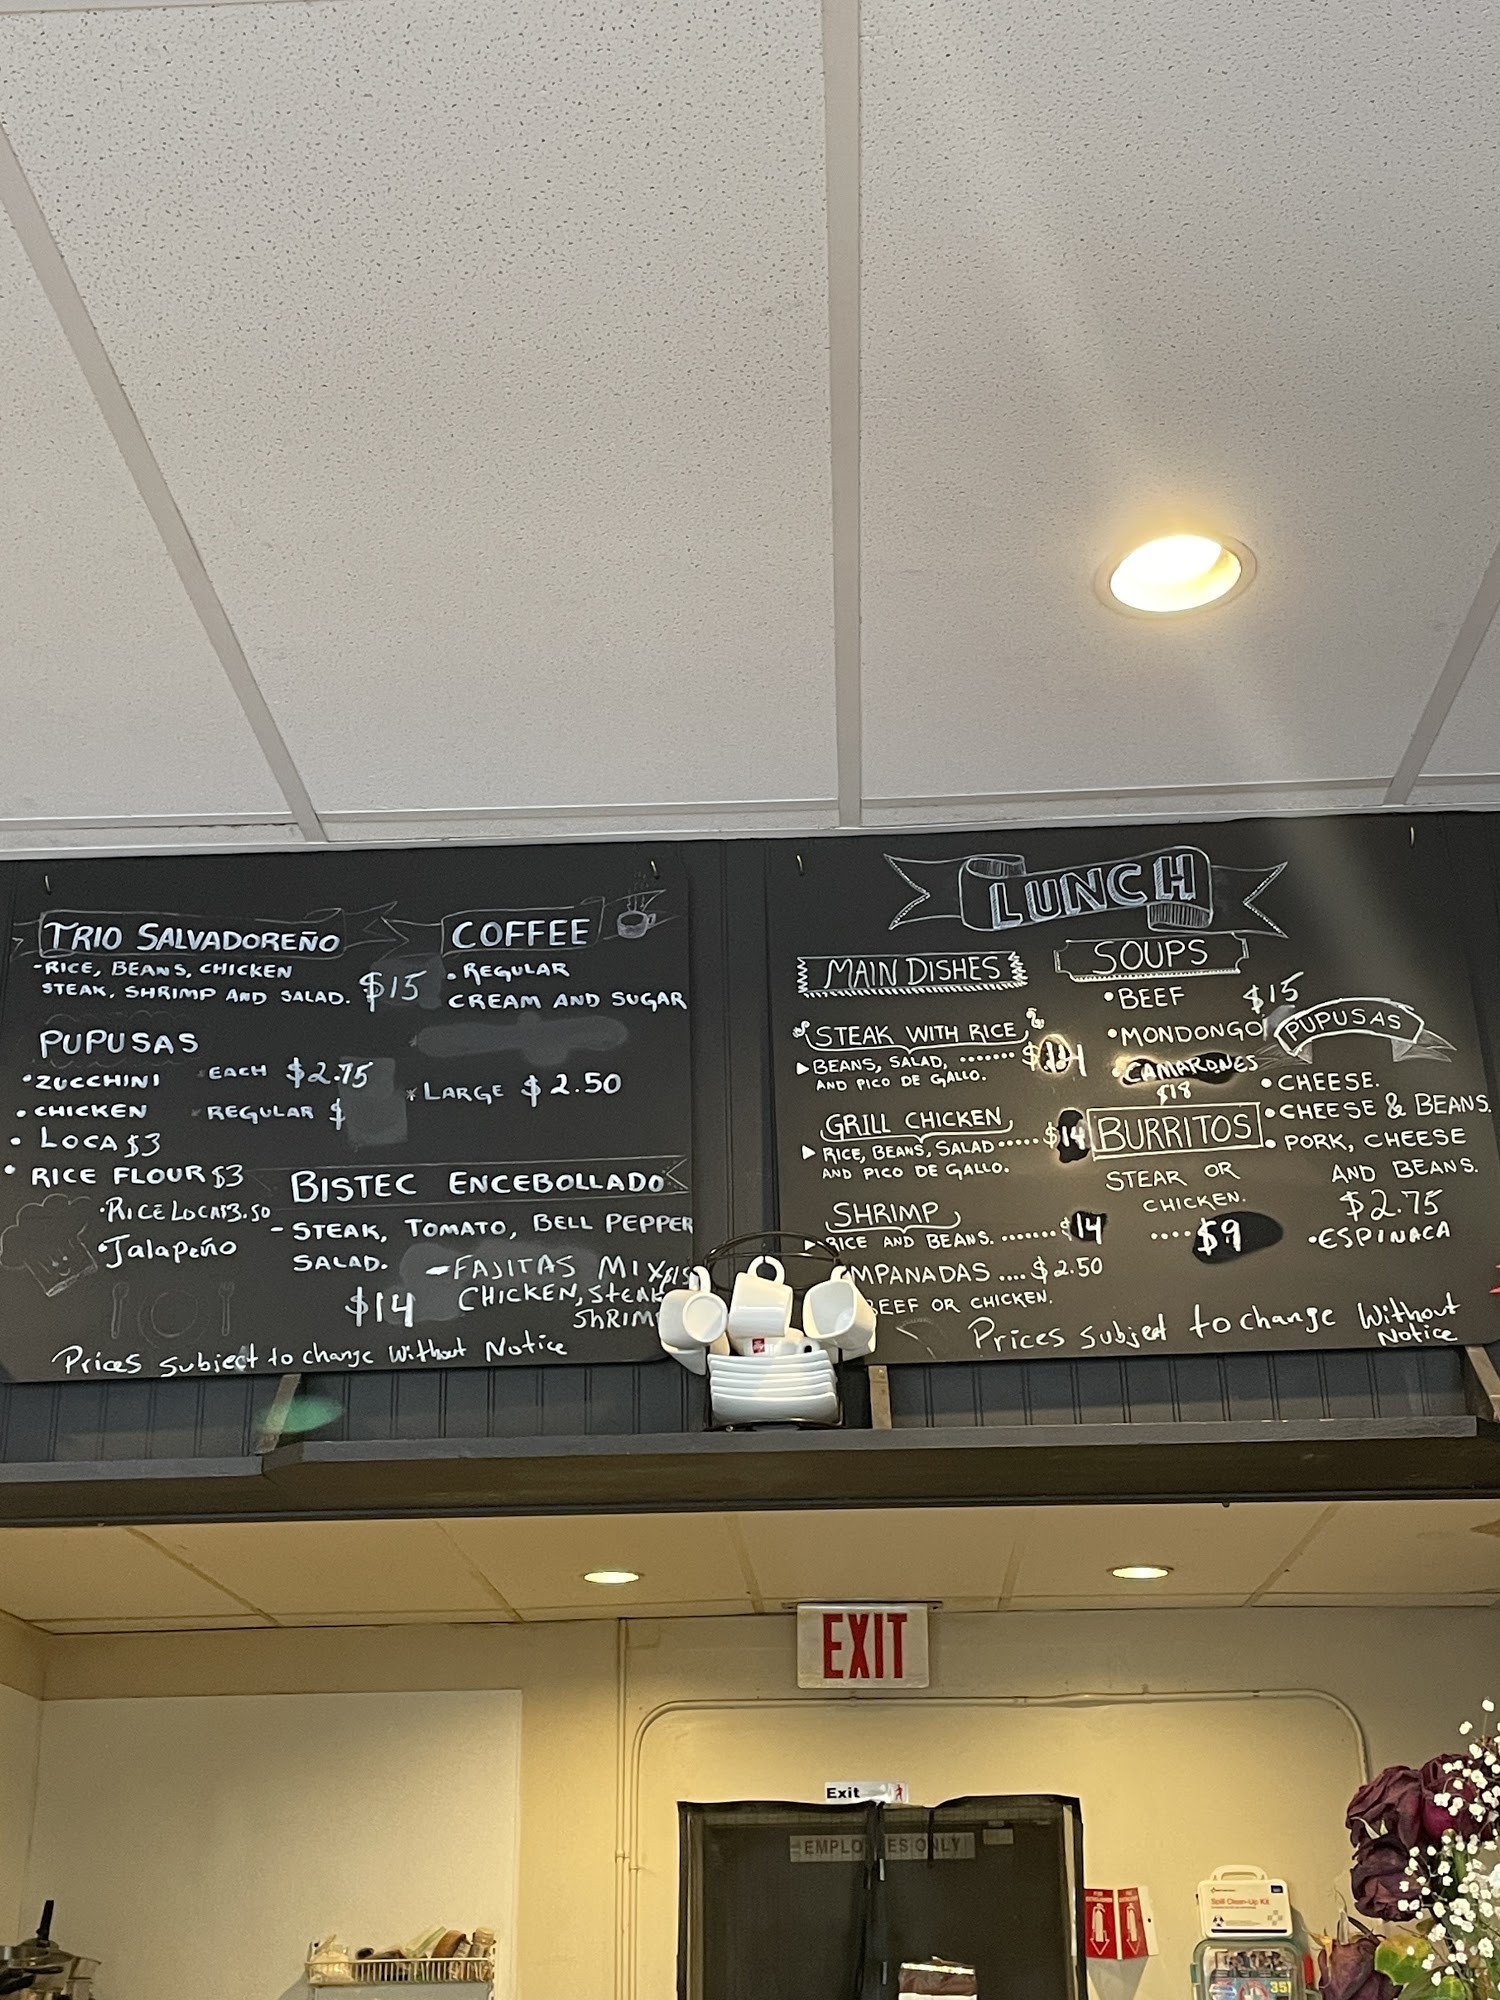 TRIO SALVADOREÑO
-RICE, BEANS, CHICKEN
STEAK, SHRIMP AND SALAD. $15
PUPUSAS
•ZUCCHINI EACH $2.75
•CHICKEN REGULAR $
•LOCA $3
•RICE FLOUR $3
•RICE LOCA $3.50
•Jalapeño
COFFEE
•REGULAR
CREAM AND SUGAR
*LARGE $2.50
BISTEC ENCEBOLLADO
-STEAK, TOMATO, BELL PEPPER
SALAD.
$14
-FAJITAS MIX $15
CHICKEN, STEAK
ShRIM
Prices subject to change Without Notice
LUNCH
MAIN DISHES
STEAK WITH RICE
▶BEANS, SALAD, ....... $14
AND PICO DE GALLO.
GRILL CHICKEN
▶RICE, BEANS, SALAD ...... $14
AND PICO DE GALLO.
SHRIMP
▶RICE AND BEANS. ....... $14
MPANADAS .... $2.50
BEEF OR CHICKEN.
SOUPS
•BEEF $15
•MONDONGO
•CAMARONES
$18
BURRITOS
STEAK OR
CHICKEN.
.... $9
PUPUSAS
•CHEESE.
•CHEESE & BEANS.
•PORK, CHEESE
AND BEANS.
$2.75
•ESPINACA
Prices subject to change Without
Notice
EXIT
Exit
EMPLOYEES ONLY
Spill Clean-Up Kit